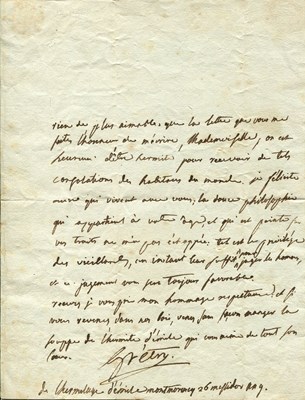 rien de plus aimable, que la lettre que vous me
faites l'honneur de m'écrire Mademoiselle, on est
heureux d'être hermite pour recevoir de tels
consolations des habitans du monde. je félicite
ceux qui vivent avec vous; la douce philosophie
qui appartient à votre âge et qui est peinte
vos traits ne m'a pas échappée, tel est le privilège
des vieillards, un instant leur suffit pour juger les hommes,
et ce jugement n'est pas toujours favorable
recevez je vous prie mon hommage respectueux et si
vous revenez dans nos bois, venez sans façon manger la
soupe de l'hermite d'émile qui vous aime de tout son
cœur.
Grétry.
de l'hermitage d'émile montmorency 26 messidor an 9.